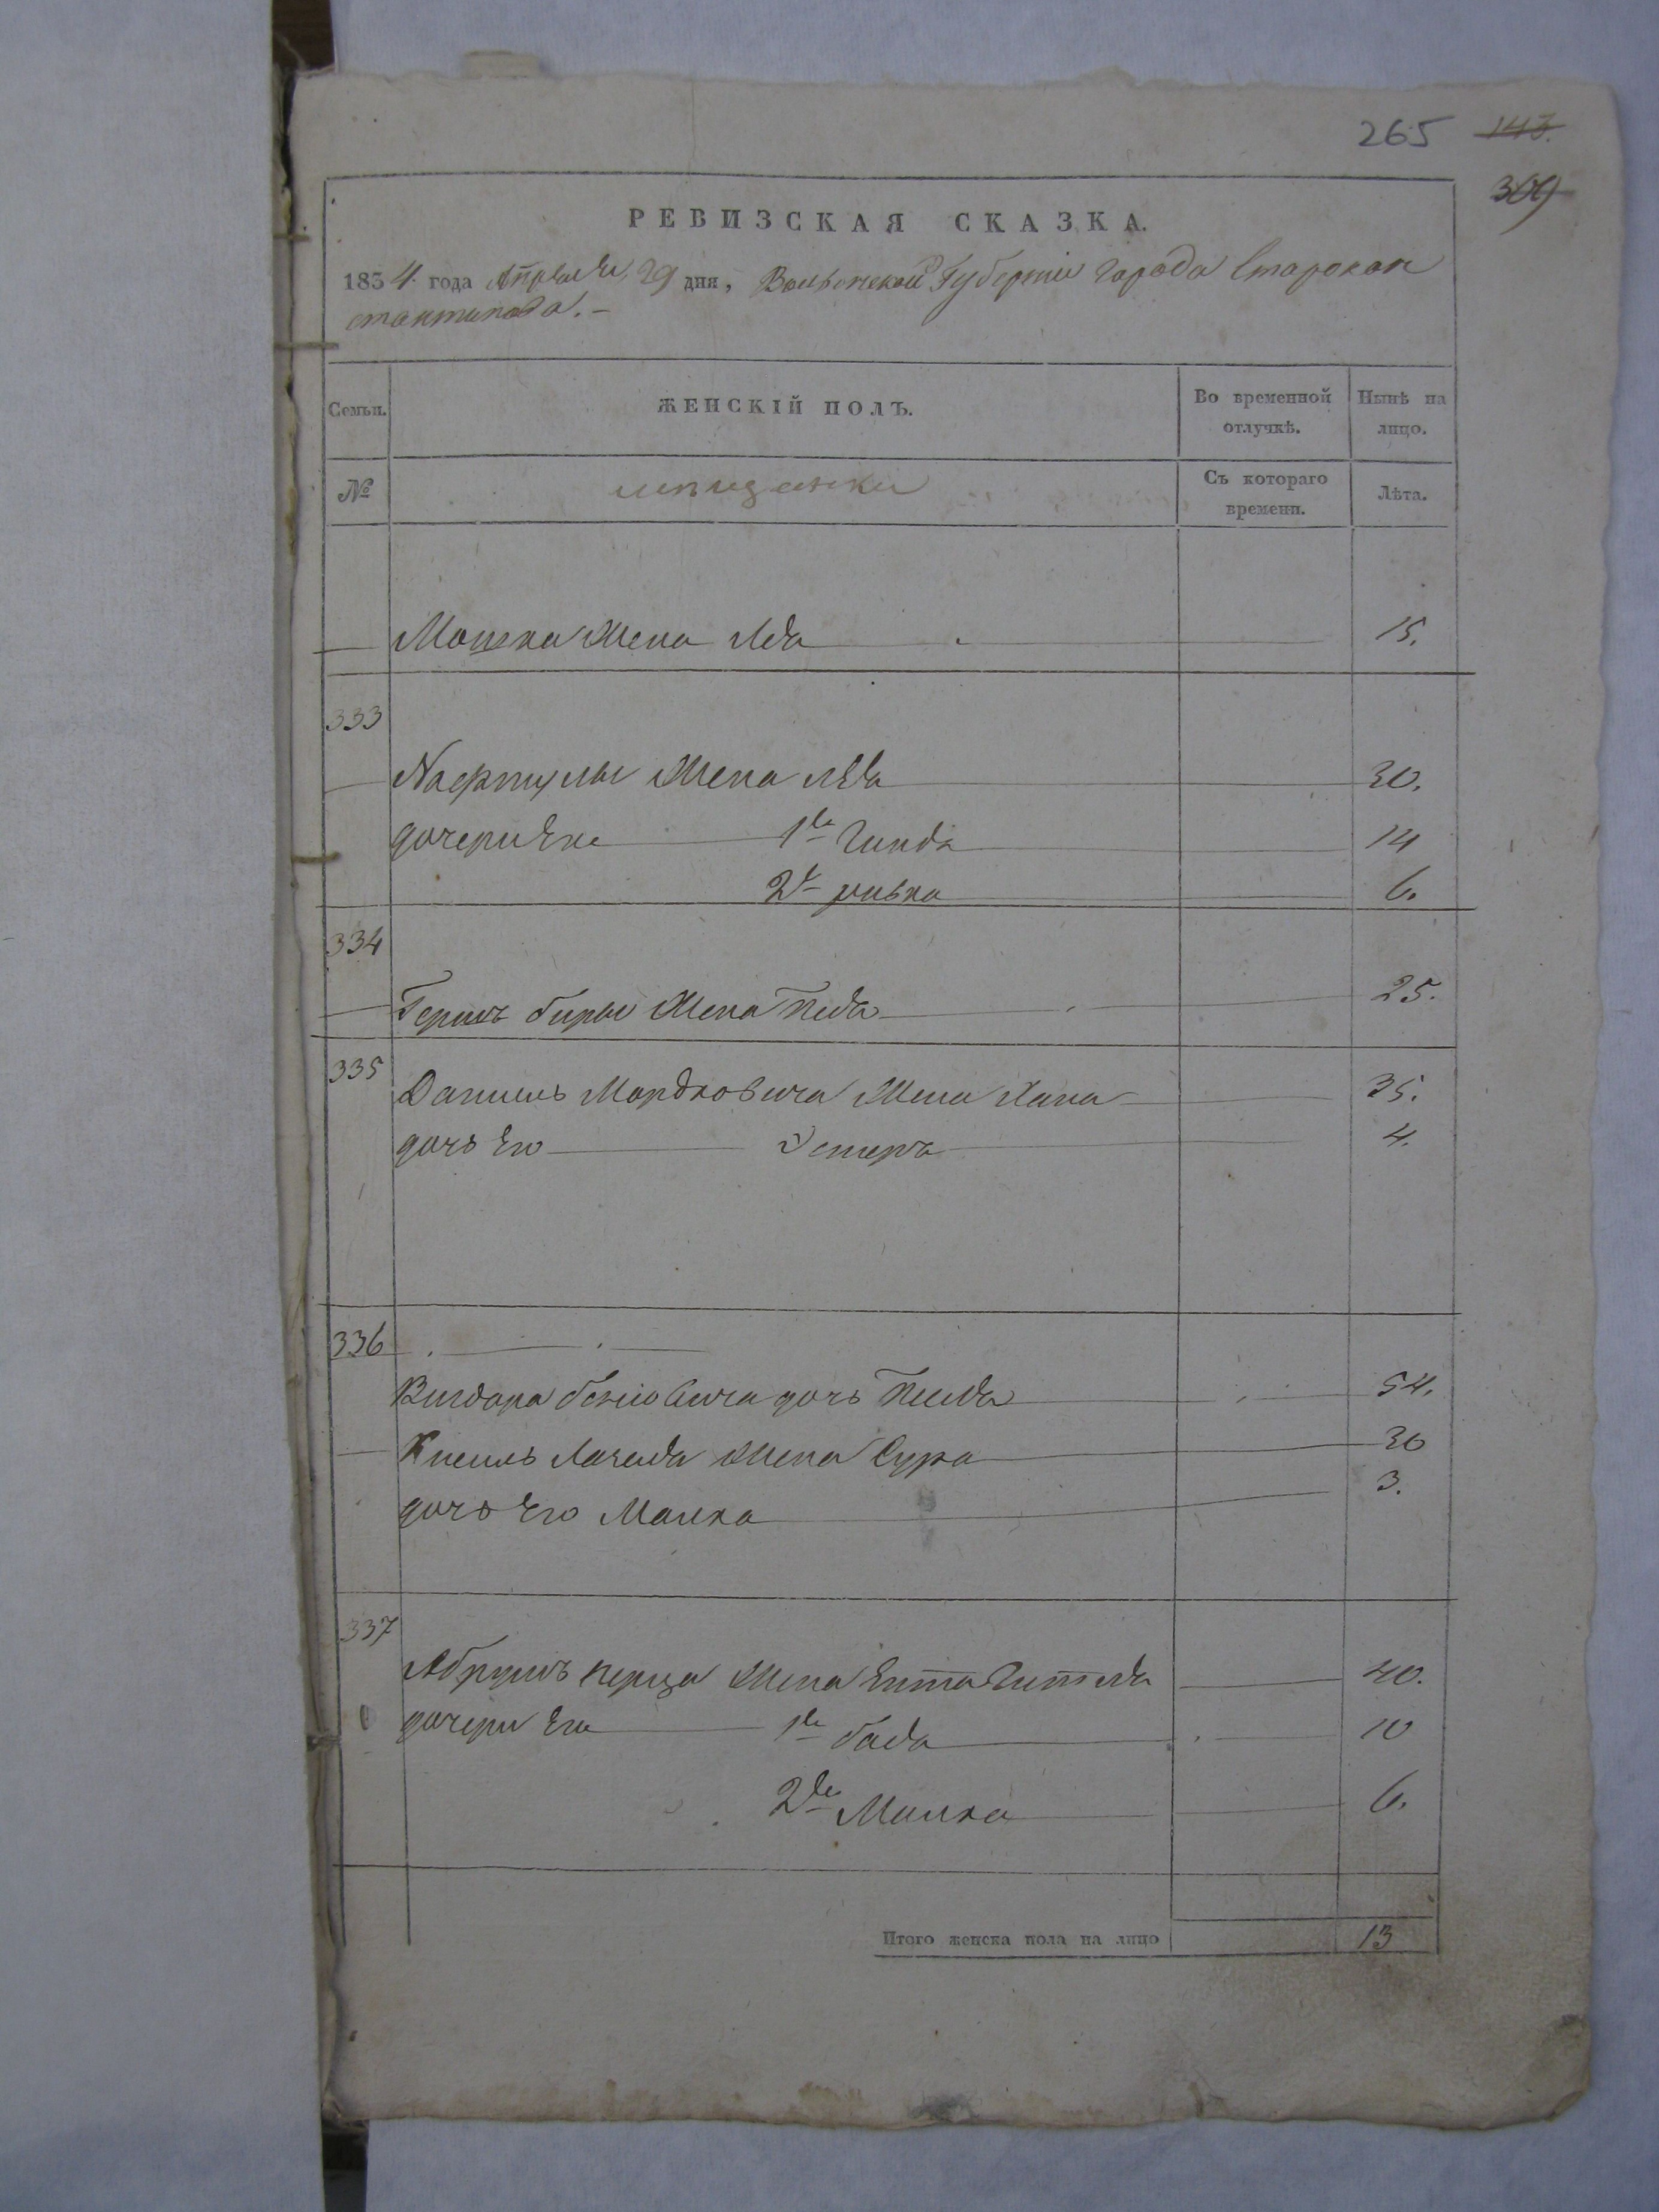 265 143.
309
РЕВИЗСКАЯ СКАЗКА.
1834 года Апреля 29 дня, Волынской Губернии города Старокон
стантинова.-
Семьи. ЖЕНСКІЙ ПОЛЪ. Во временной отлучкѣ. Нынѣ на лицо.
№ мещанки Съ котораго времени. Лѣта.
Мошка Жена 15.
333
Нафтулы Жена 30.
дочери Его 1я Гинда 14
2я ривка 6.
334
Герша Жена 25.
335
Даниель Мордковича Жена Хана 35.
дочь Его Эстера 4.
336
Вигдора дочь 54.
Кисиль Жена Сура 30
дочь Его Малка 3.
337
Абрумъ перца Жена 40.
дочери Его 1я бася 10
2я Малка 6.
Итого женска пола на лицо 13